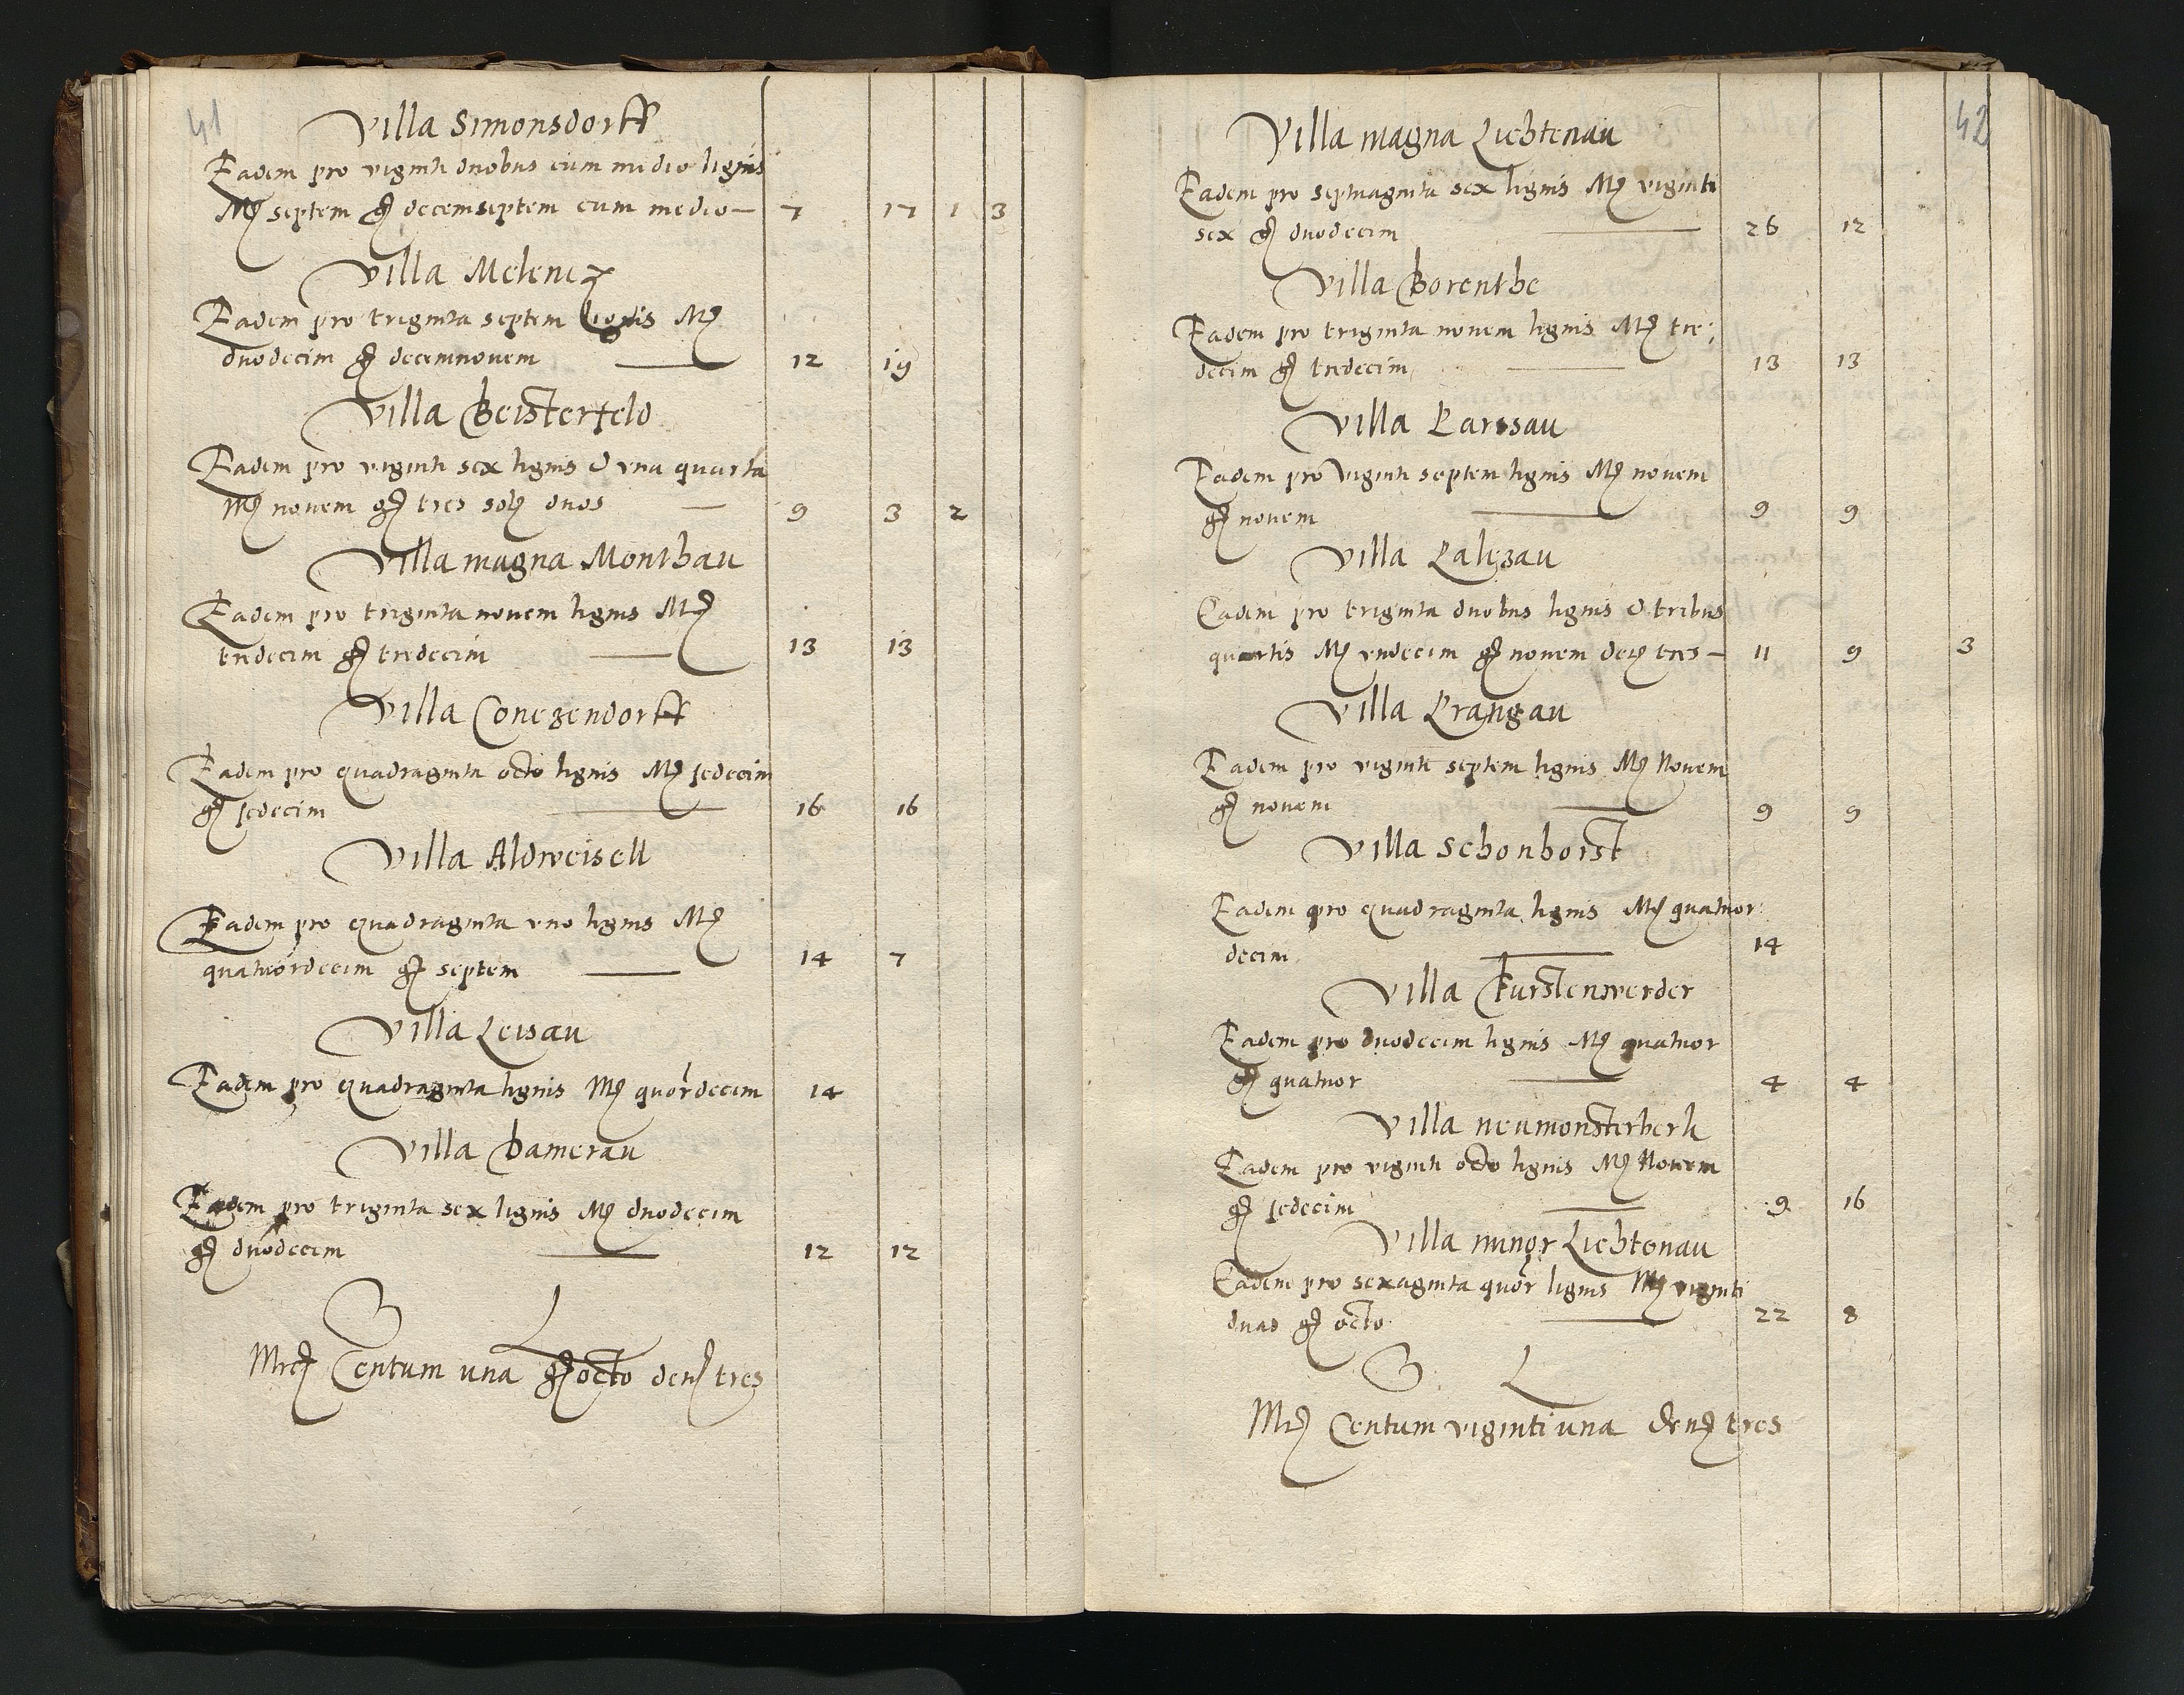 41
Villa Simonsdorff
Eadem pro viginti duobus cum medio lignis
Mr septem gr decemseptem cum medio — 7 17 1 3
Villa Melencz
Eadem pro triginta septem lignis Mr
duodecim gr decemnovem — 12 19
Villa Beisterfeld
Eadem pro viginti sex lignis & vna quarta
Mr novem gr tres sol duos — 9 3 2
Villa magna Monthau
Eadem pro triginta novem lignis Mr
tredecim gr tredecim — 13 13
Villa Conezendorff
Eadem pro quadraginta octo lignis Mr sedecim
gr sedecim — 16 16
Villa Aldweisell
Eadem pro quadraginta vno lignis Mr
quatuordecim gr septem — 14 7
Villa Leisau
Eadem pro quadraginta lignis Mr quordecim 14
Villa Damerau
Eadem pro triginta sex lignis Mr duodecim
gr duodecim — 12 12
Mrc Centum una gr octo den tres
42
Villa magna Lichtenau
Eadem pro septuaginta sex lignis Mr viginti
sex gr duodecim — 26 12
Villa Borenthe
Eadem pro triginta novem lignis Mr tre:
decim gr tredecim — 13 13
Villa Parssau
Eadem pro viginti septem lignis Mr novem
gr novem — 9 9
Villa Palczau
Eadem pro triginta duobus lignis & tribus
quartis Mr vndecim gr novem den tres — 11 9 3
Villa Prangau
Eadem pro viginti septem lignis Mr Novem
gr novem — 9 9
Villa Schonhorst
Eadem pro quadraginta lignis Mr quatuor:
decim — 14
Villa Furstenwerder
Eadem pro duodecim lignis Mr quatuor
gr quatuor — 4 4
Villa neumonsterberk
Eadem pro viginti octo lignis Mr Novem
gr sedecim — 9 16
Villa minor Lichtenau
Eadem pro sexaginta quor lignis Mr viginti
duas gr octo — 22 8
Mr Centum viginti una den tres